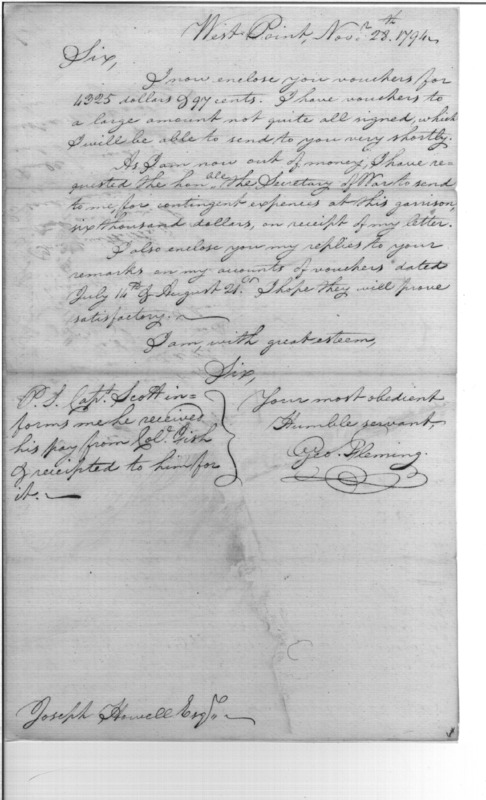 West Point, Nov.r 28.th 1794.
Sir,
I now enclose you vouchers for
4325 dollars & 97 cents. I have vouchers to
a large amount not quite all signed, which
I will be able to send to you very shortly.
As I am now out of money, I have re=
quested the honble. the Secretary of War to send
to me, for contingent expences at this garrison,
six thousand dollars, on receipt of my letter.
I also enclose you my replies to your
remarks on my accounts of vouchers dated
July 14th & August 21st. I hope they will prove
satisfactory.
I am, with great esteem,
Sir,
Your most obedient
Humble servant
Geo. Fleming.
P.S. Capt. Scott in=
forms me he received
his pay from Colo. Fish
& receipted to him for
it.
Joseph Howell Esqr.